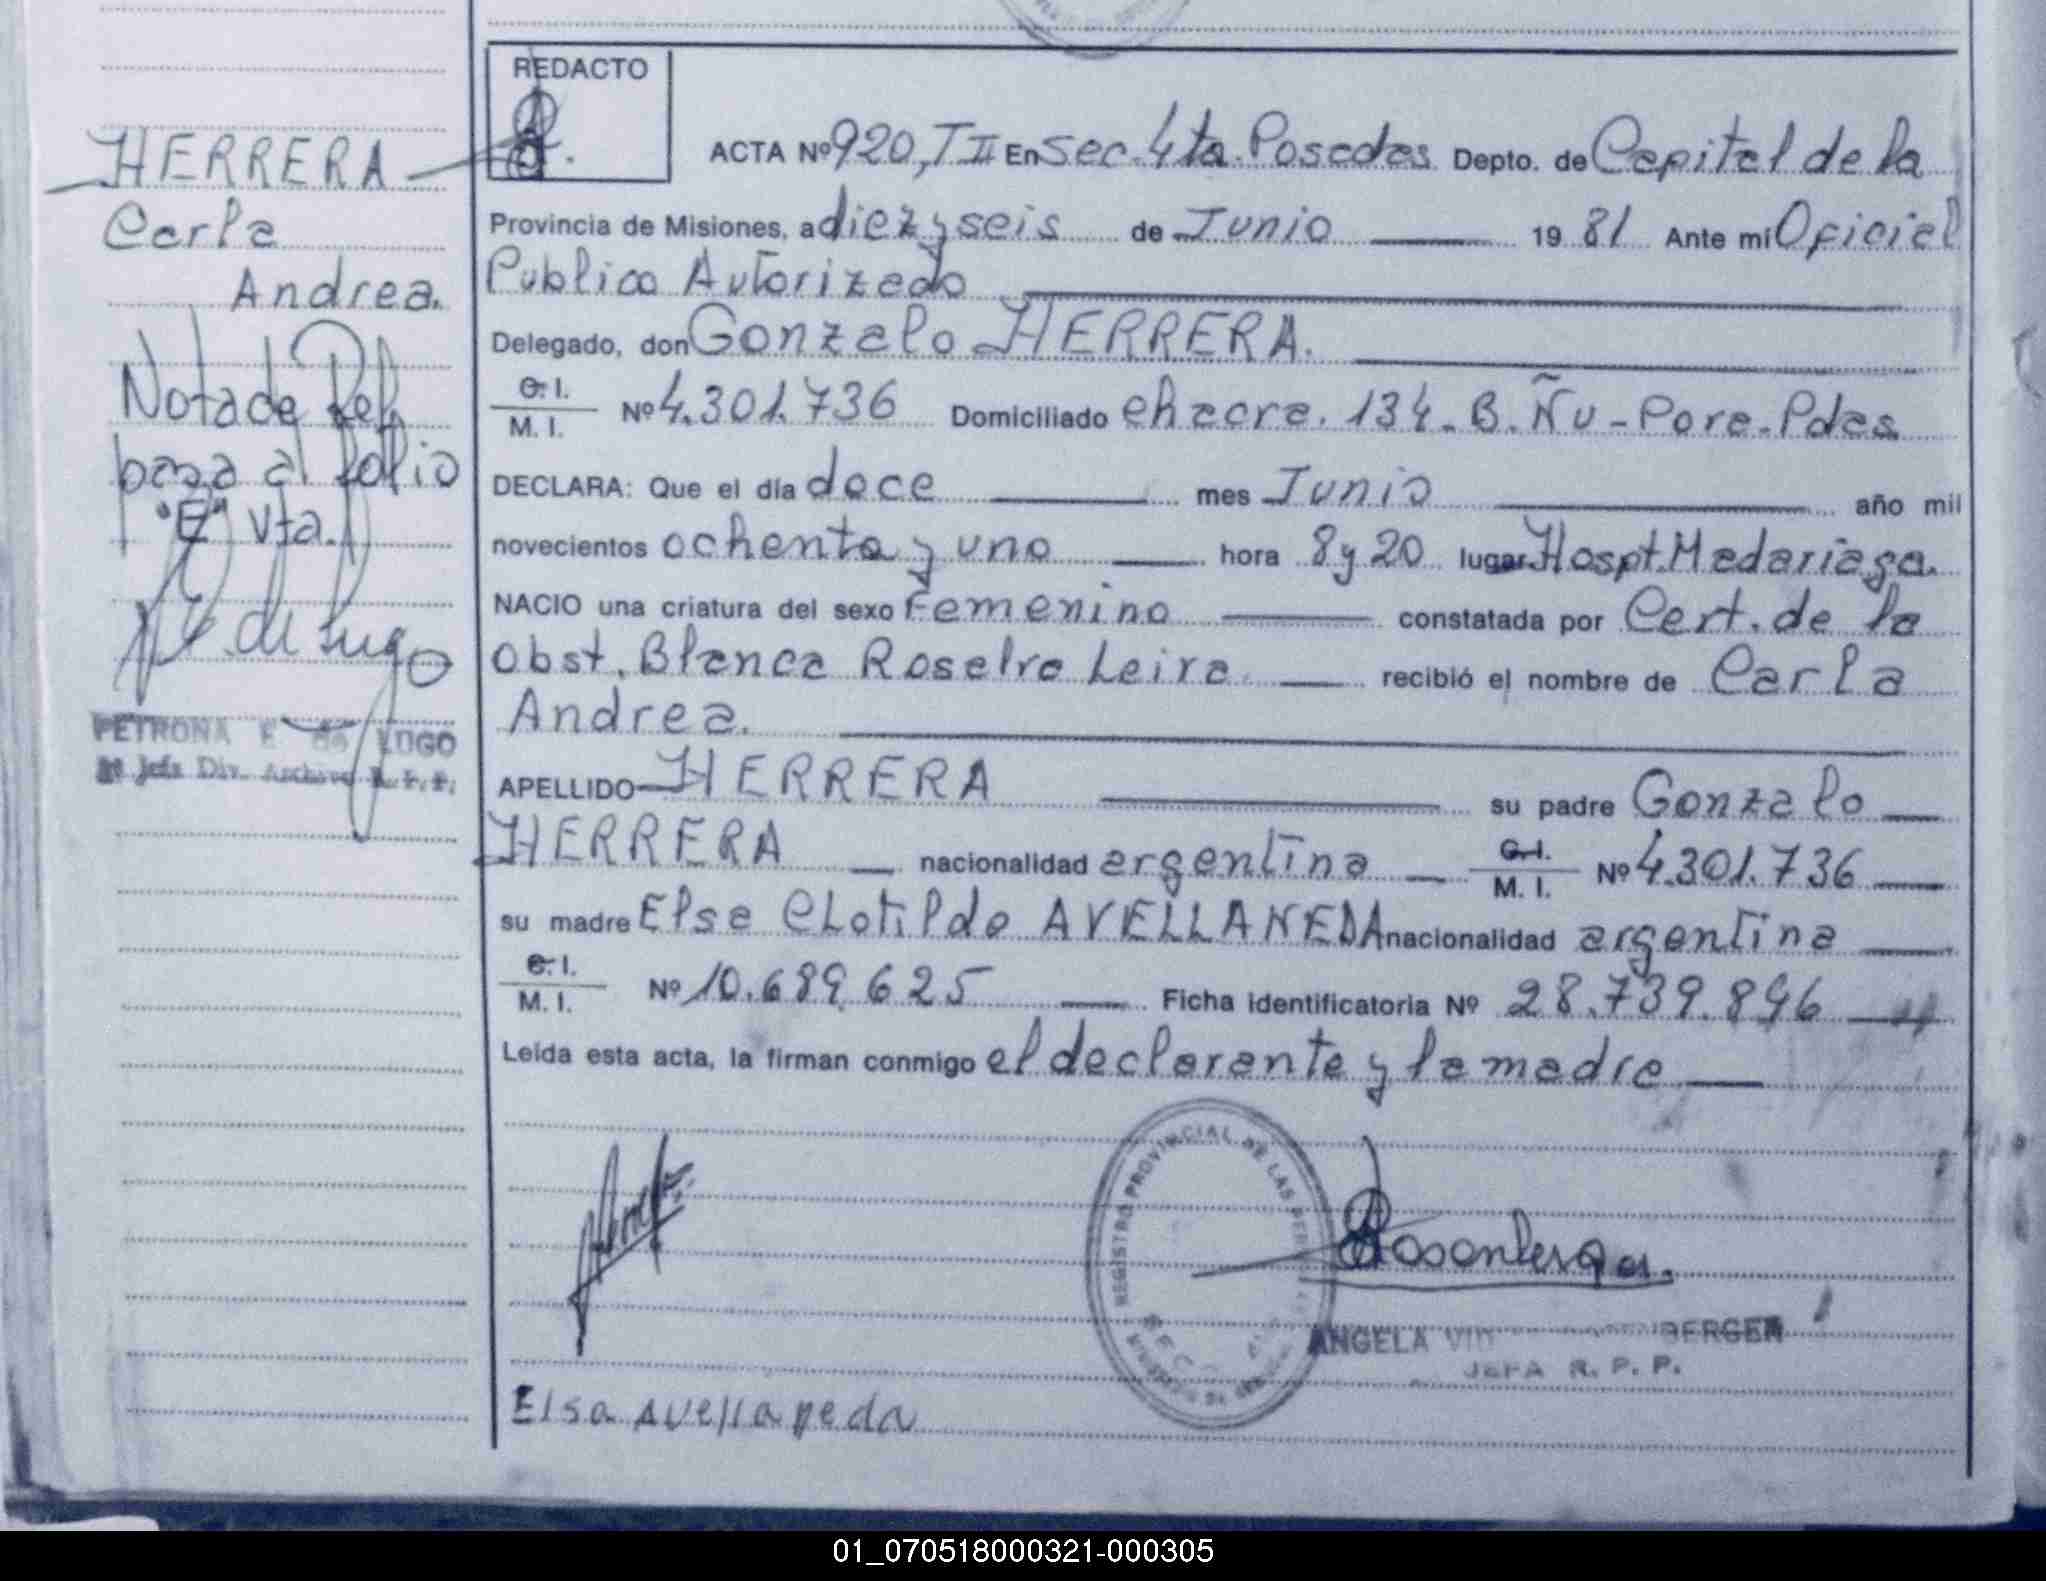 REDACTO
HERRERA
Carla
Andrea.
Nota de Ref.
pasa al folio
"E" vta.
PETRONA E de LUGO
2º Jefe Div. Archivo R.P.P.
ACTA Nº 920, T II En Sec. 4ta. Posadas Depto. de Capital de la
Provincia de Misiones, a diez y seis de Junio 19 81 Ante mí Oficial
Publico Autorizado
Delegado, don Gonzalo HERRERA.
C. I.
M. I. Nº 4.301.736 Domiciliado chacra. 134. B. Ñu-Pora-Pdas
DECLARA: Que el día doce mes Junio año mil
novecientos ochenta y uno hora 8 y 20 lugar Hospt. Madariaga.
NACIO una criatura del sexo Femenino constatada por Cert. de la
Obst. Blanca Leira recibió el nombre de Carla
Andrea.
APELLIDO HERRERA su padre Gonzalo
HERRERA nacionalidad argentina C. I.
M. I. Nº 4.301.736
su madre Elsa CLotilde AVELLANEDA nacionalidad argentina
C. I.
M. I. Nº 10.689.625 Ficha identificatoria Nº 28.739.896
Leída esta acta, la firman conmigo el declarante y la madre
REGISTRO PROVINCIAL DE LAS
ANGELA BERGER
JEFA R. P. P.
Elsa Avellaneda
01_070518000321-000305